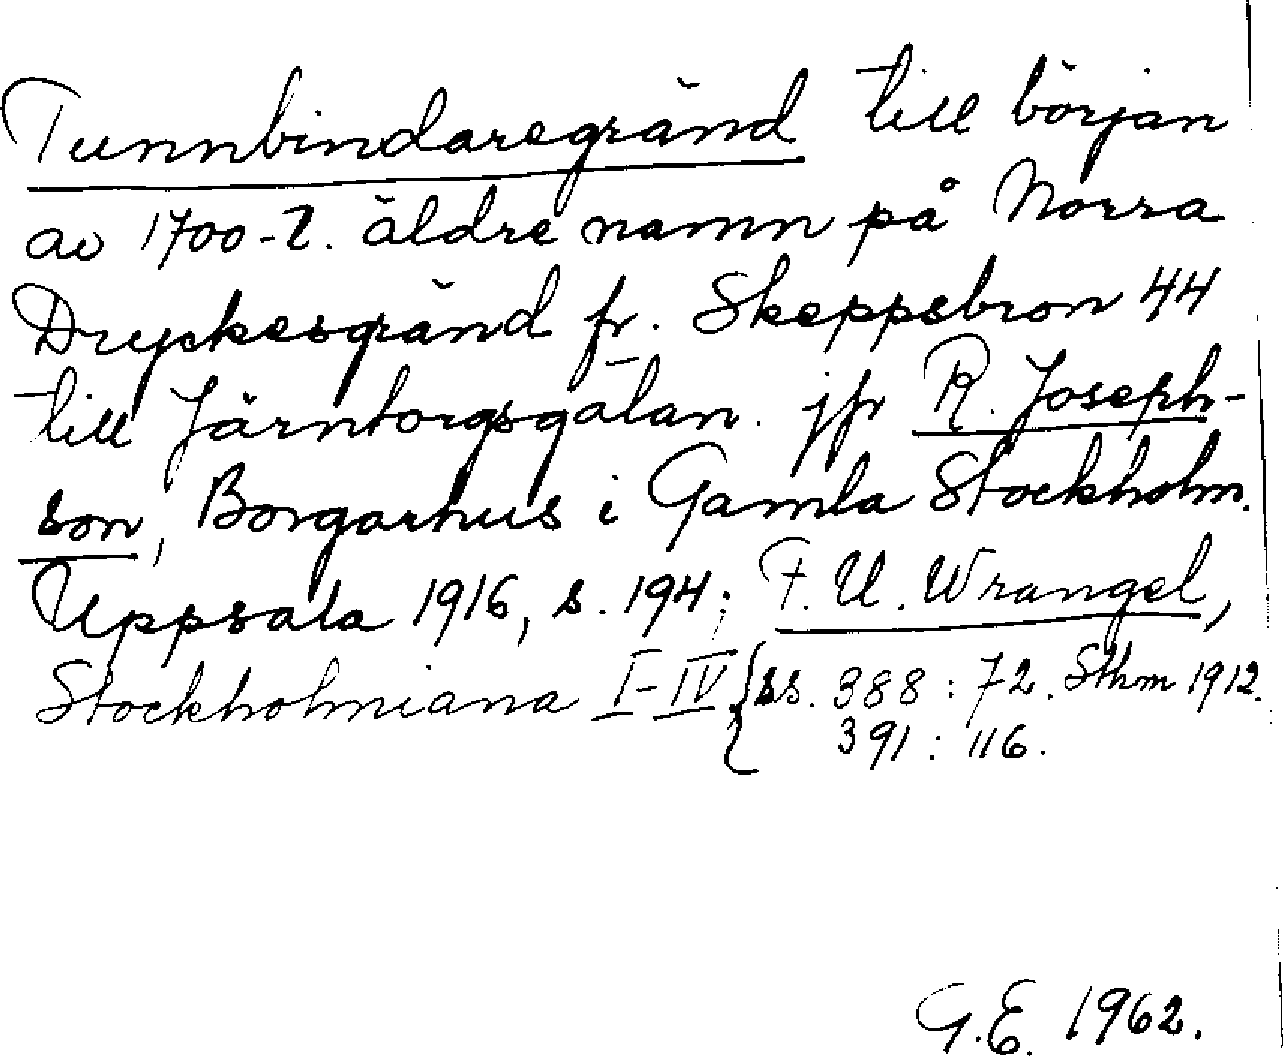 Tunnbindaregränd till början
av 1700-t. äldre namn på Norra
Dryckesgränd fr. Skeppsbron 44
till Järntorgsgatan. jfr R. Joseph-
son, Borgarhus i Gamla Stockholm.
Uppsala 1916, s. 194; F. U. Wrangel,
Stockholmiana I-IV { ss. 388 : 72. Sthm 1912.
391 : 116.
G.E. 1962.